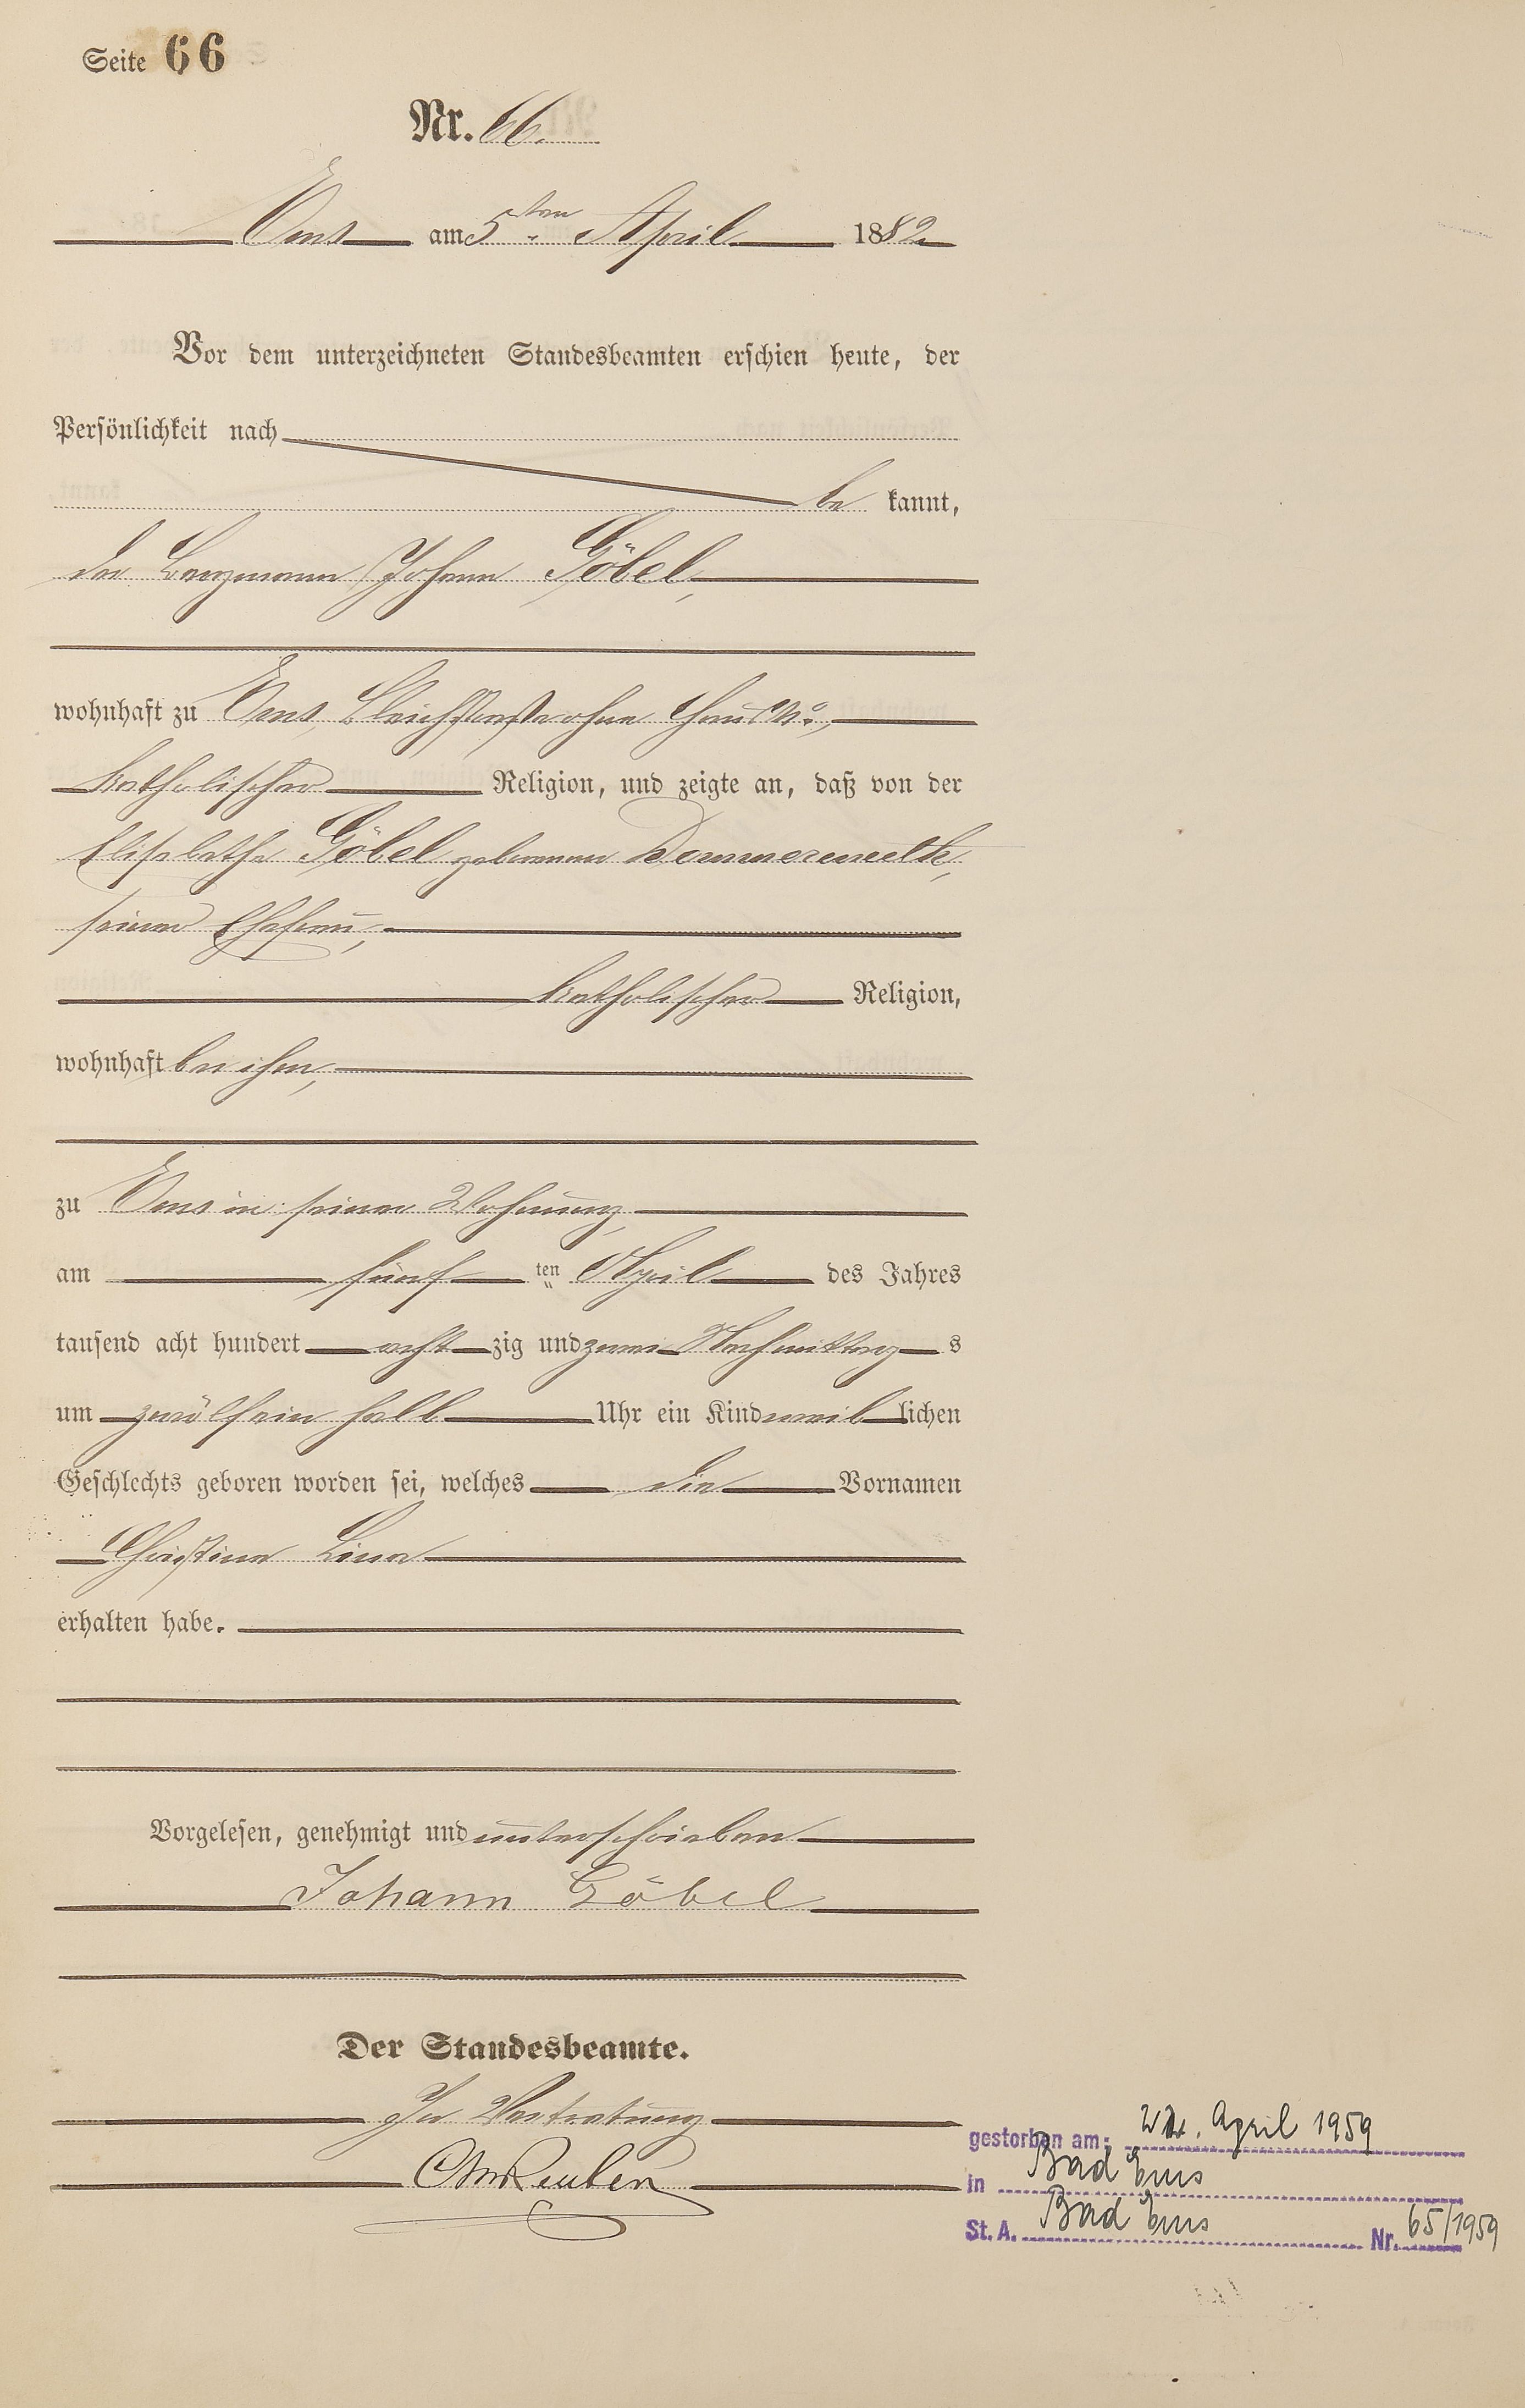 Seite 66
Nr. 66.
Ems am 5ten April 1882
Vor dem unterzeichneten Standesbeamten erschien heute, der
Persönlichkeit nach
be kannt,
der Bergmann Johann Göbel,
wohnhaft zu Ems, ohne Haus No.,
katholischer Religion, und zeigte an, daß von der
Elisabetha Göbel geborenen Dommermuth,
seiner Ehefrau,
katholischer Religion,
wohnhaft bei ihm,
zu Ems in seiner Wohnung,
am fünf ten April des Jahres
tausend acht hundert acht zig und zwei Nachmittag s
um zwölfein halb Uhr ein Kind weib lichen
Geschlechts geboren worden sei, welches die Vornamen
Christina Lina
erhalten habe.
Vorgelesen, genehmigt und unterschrieben
Johann Göbel
Der Standesbeamte.
In Vertretung
gestorben am: April 1959
in Bad Ems
St. A. Bad Ems Nr. 65/1959